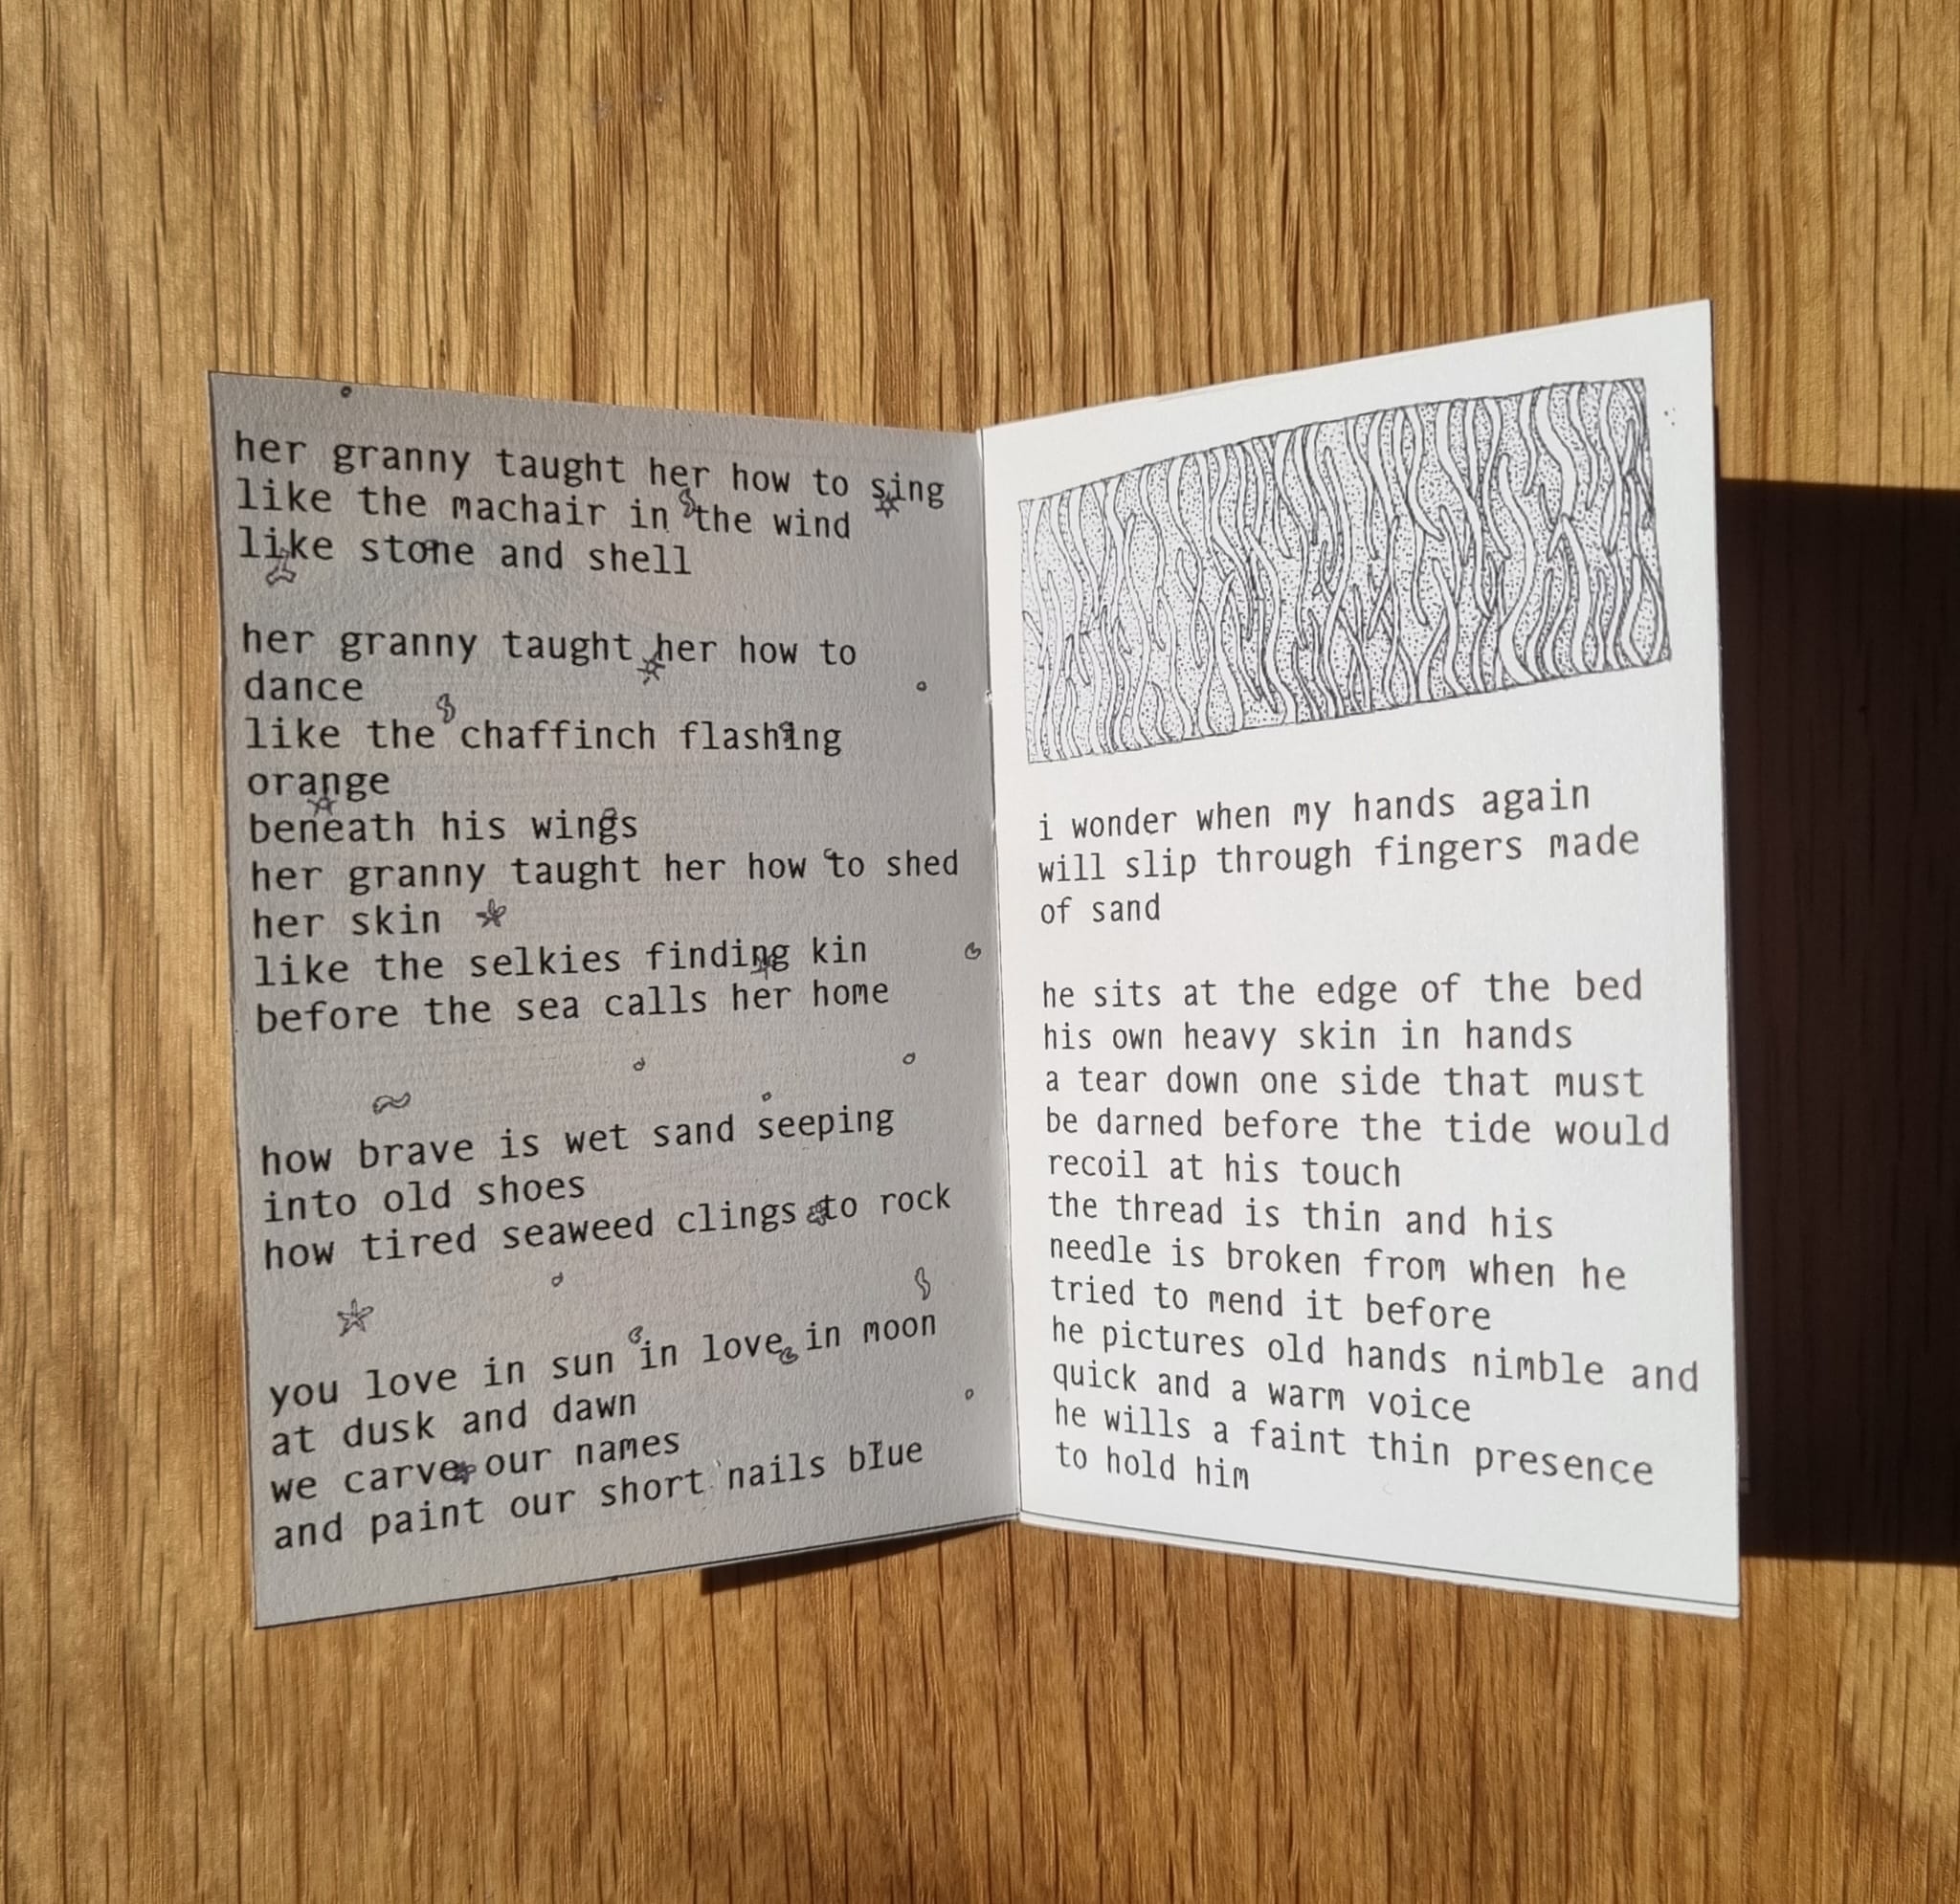 her granny taught her how to sing
like the machair in the wind
like stone and shell
her granny taught her how to
dance
like the chaffinch flashing
orange
beneath his wings
her granny taught her how to shed
her skin
like the selkies finding kin
before the sea calls her home
how brave is wet sand seeping
into old shoes
how tired seaweed clings to rock
you love in sun in love in moon
at dusk and dawn
we carve our names
and paint our short nails blue
i wonder when my hands again
will slip through fingers made
of sand
he sits at the edge of the bed
his own heavy skin in hands
a tear down one side that must
be darned before the tide would
recoil at his touch
the thread is thin and his
needle is broken from when he
tried to mend it before
he pictures old hands nimble and
quick and a warm voice
he wills a faint thin presence
to hold him